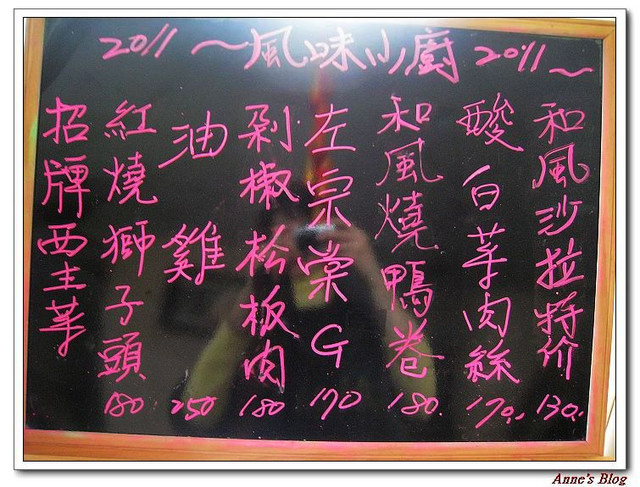 2011～風味小廚 2011～
和風沙拉特价 130.
酸白菜肉絲 170.
和風燒鴨卷 180.
左宗棠G 170
剁椒松板肉 180
油雞 250
紅燒獅子頭 180
招牌西生菜
Anne's Blog